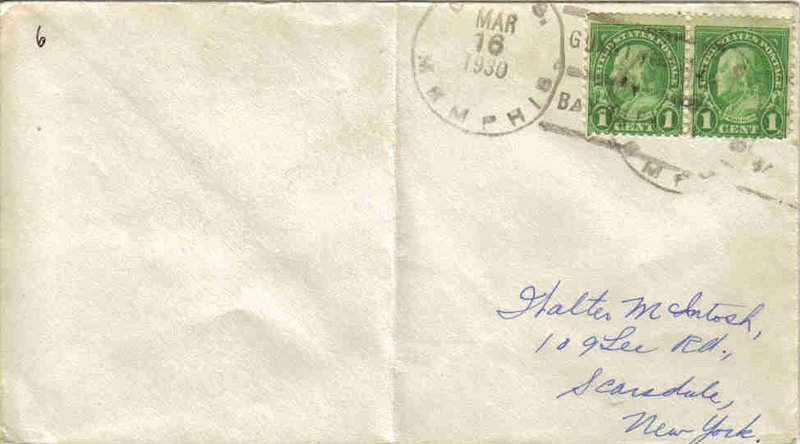 6
MAR
16
1930
MEMPHIS
BA
UNITED STATES POSTAGE
1 CENT 1
UNITED STATES POSTAGE
1 CENT 1
Walter McIntosh,
109 Lee Rd.,
Scarsdale,
New York.